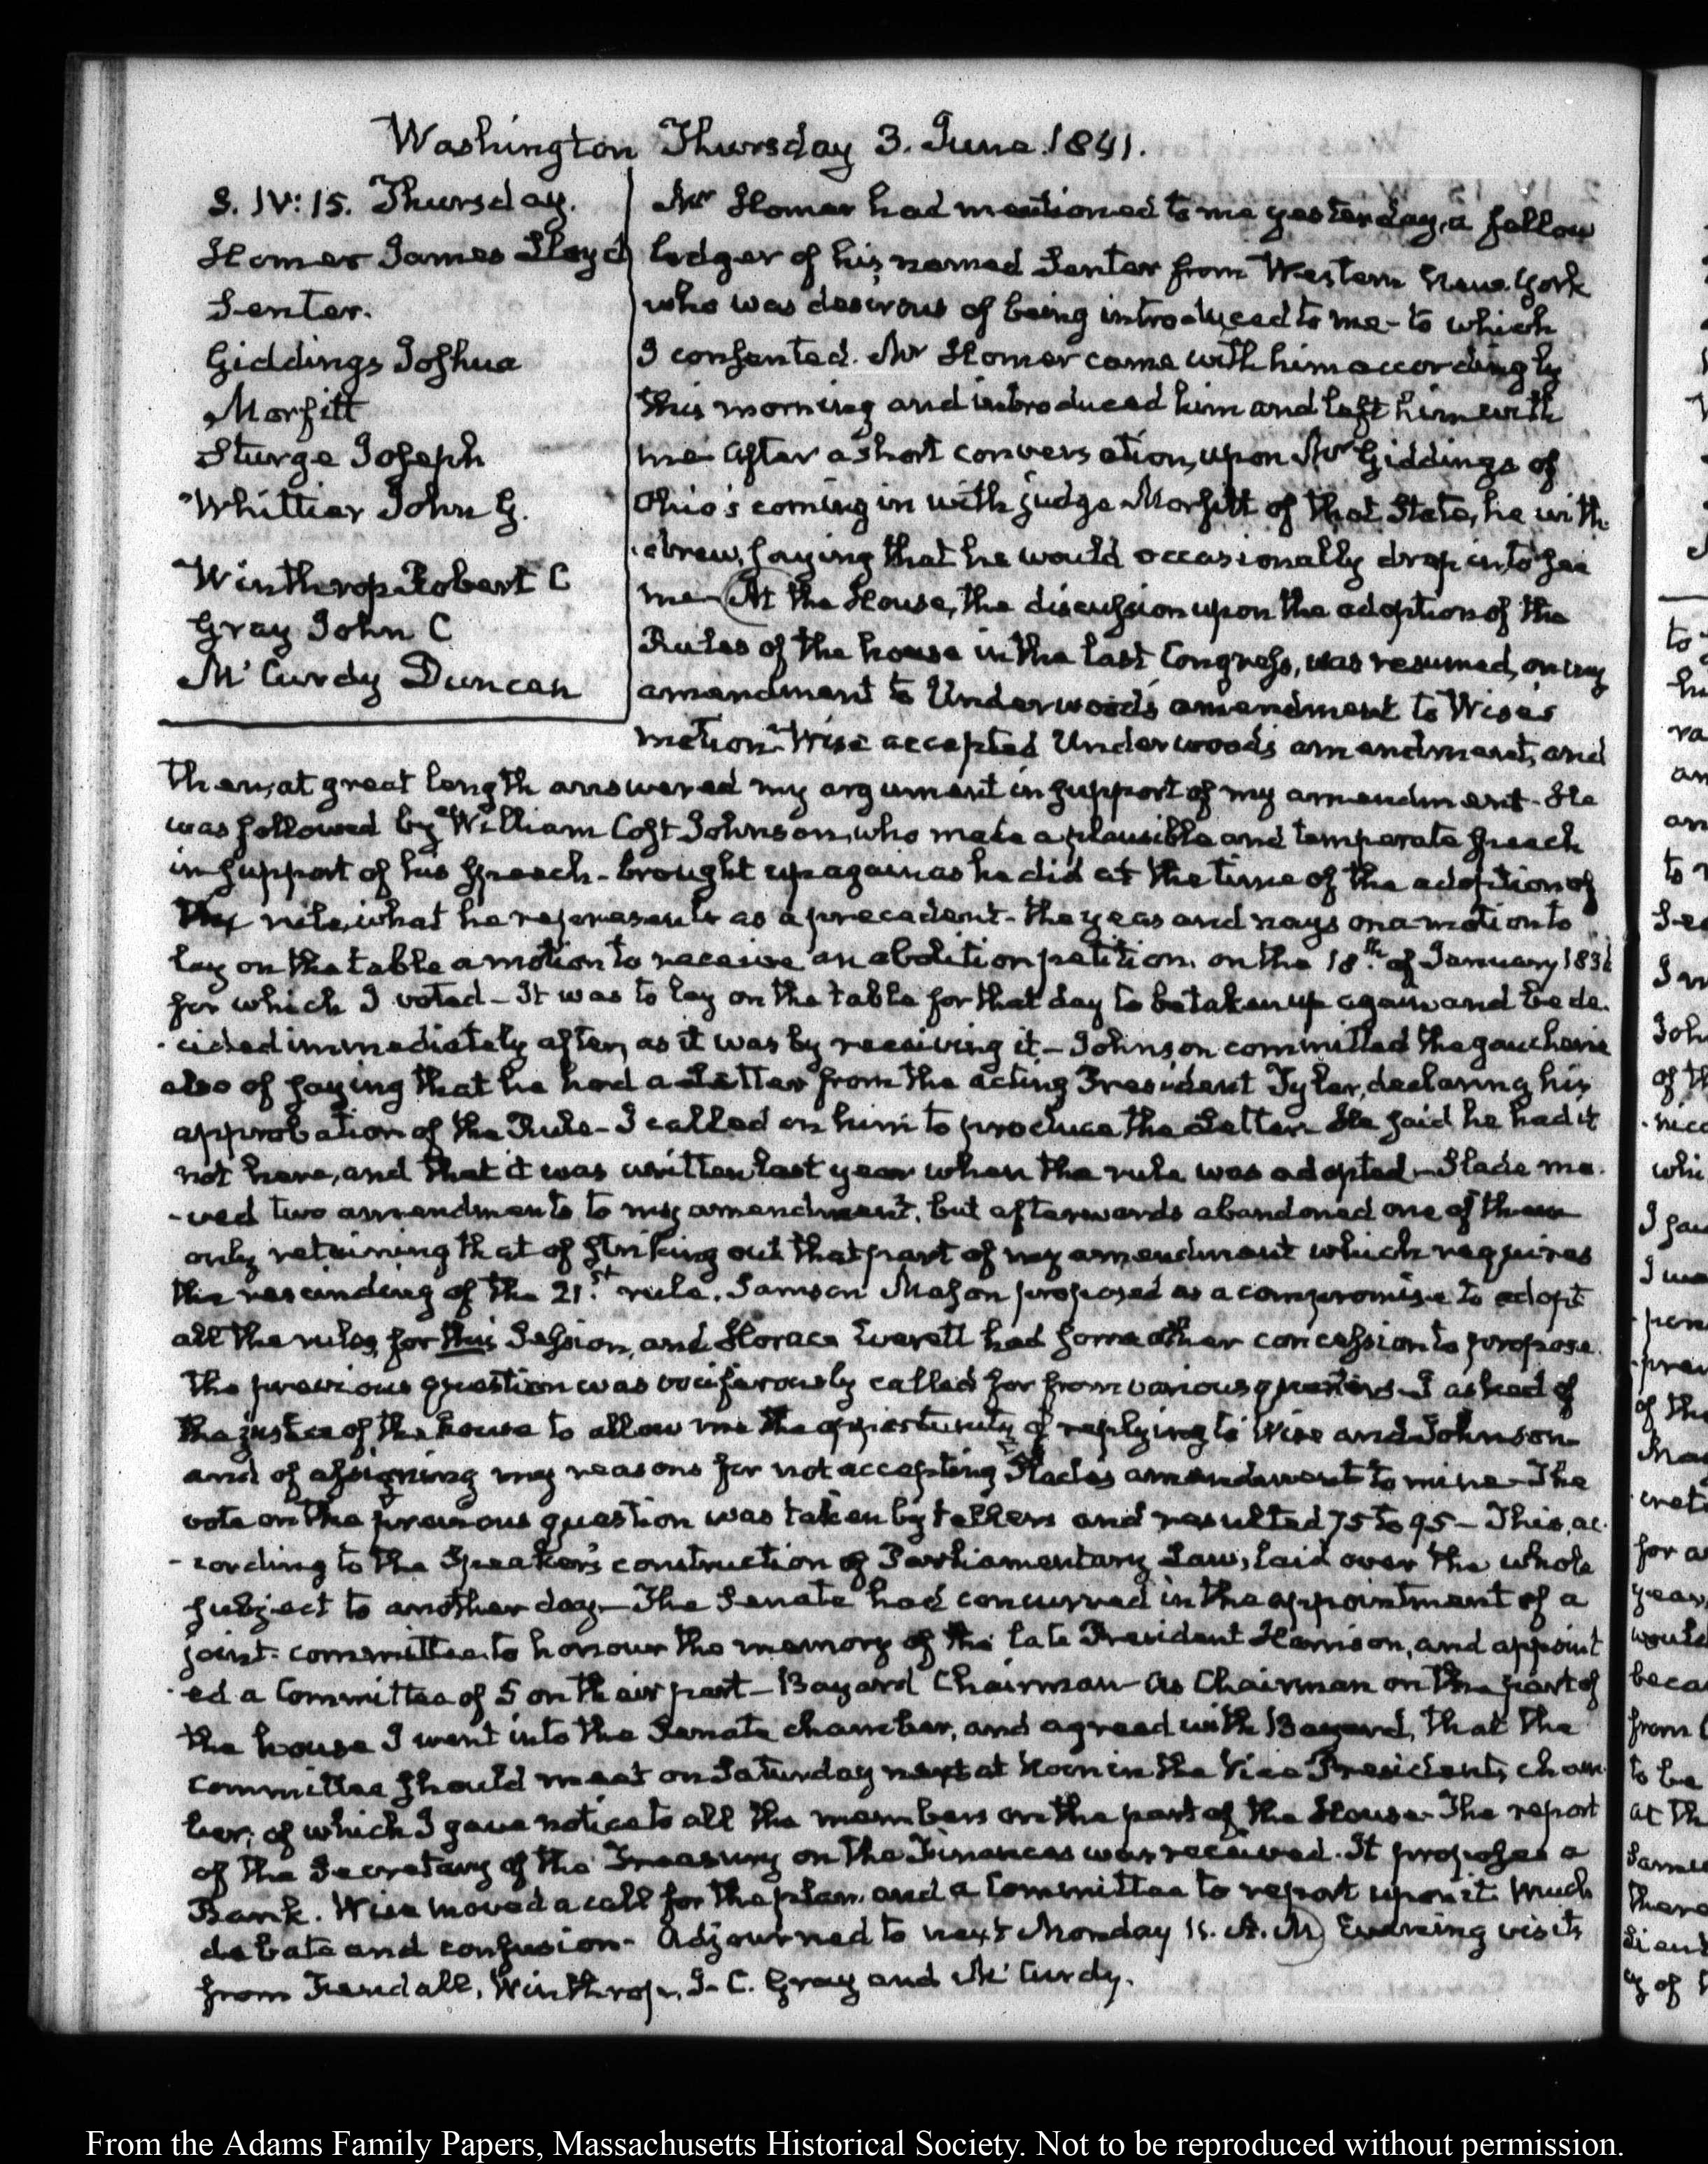 Washington Thursday 3. June 1841.
3. IV: 15. Thursday.
Homer James Lloyd
Senter.
Giddings Joshua
Morfitt
Sturge Joseph
Whittier John G.
Winthrop Robert C
Gray John C
Mc Curdy Duncan
Mr Homer had mentioned to me yesterday, a fellow
lodger of his, named Senter from Western New York
who was desirous of being introduced to me - to which
I consented. Mr Homer came with him accordingly
this morning and introduced him and left him with
me - After a short conversation, upon Mr Giddings of
Ohio's coming in with judge Morfitt of that State, he with-
-drew, saying that he would occasionally drop in, to see
me - At the House, the discussion upon the adoption of the
Rules of the house in the last Congress, was resumed, on my
amendment to Underwood's amendment to Wise's
motion - Wise accepted Underwood's amendment, and
then, at great length answered my argument in support of my amendment - He
was followed by William Cost Johnson, who made a plausible and temperate speech
in support of his speech - brought up again as he did at the time of the adoption of
the rule, what he represents as a precedent - the yeas and nays on a motion to
lay on the table a motion to receive an abolition petition, on the 18th. of January 1836
for which I voted - It was to lay on the table for that day to be taken up again and be de-
-cided immediately after, as it was by receiving it - Johnson committed the gaucherie
also of saying that he had a Letter from the acting President Tyler, declaring his
approbation of the Rule - I called on him to produce the Letter - He said he had it
not here, and that it was written last year when the rule was adopted - Slade mo-
-ved two amendments to my amendment, but afterwards abandoned one of them
only retaining that of striking out that part of my amendment which requires
the rescinding of the 21st. rule. Samson Mason proposed as a compromise to adopt
all the rules, for this Session, and Horace Everett had some other concession to propose.
The previous question was vociferously called for from various quarters - I asked of
the justice of the house to allow me the opportunity of replying to Wise and Johnson
and of assigning my reasons for not accepting Slade's amendment to mine - The
vote on the previous question was taken by tellers and resulted 75 to 95 - This, ac-
-cording to the Speaker's construction of Parliamentary Law, laid over the whole
subject to another day - The Senate had concurred in the appointment of a
joint committee to honour the memory of the late President Harrison, and appoint
-ed a Committee of 5 on their part - Bayard Chairman - As Chairman on the part of
the house I went into the Senate chamber, and agreed with Bayard, that the
committee should meet on Saturday next at Noon in the Vice President's cham-
ber, of which I gave notice to all the members on the part of the House - The report
of the Secretary of the Treasury on the Finances was received. It proposes a
Bank. Wise moved a call for the plan, and a Committee to report upon it. Much
debate and confusion - Adjourned to next Monday 11. A.M. Evening visits
from Trendall, Winthrop, J. C. Gray and Mc Curdy.
From the Adams Family Papers, Massachusetts Historical Society. Not to be reproduced without permission.